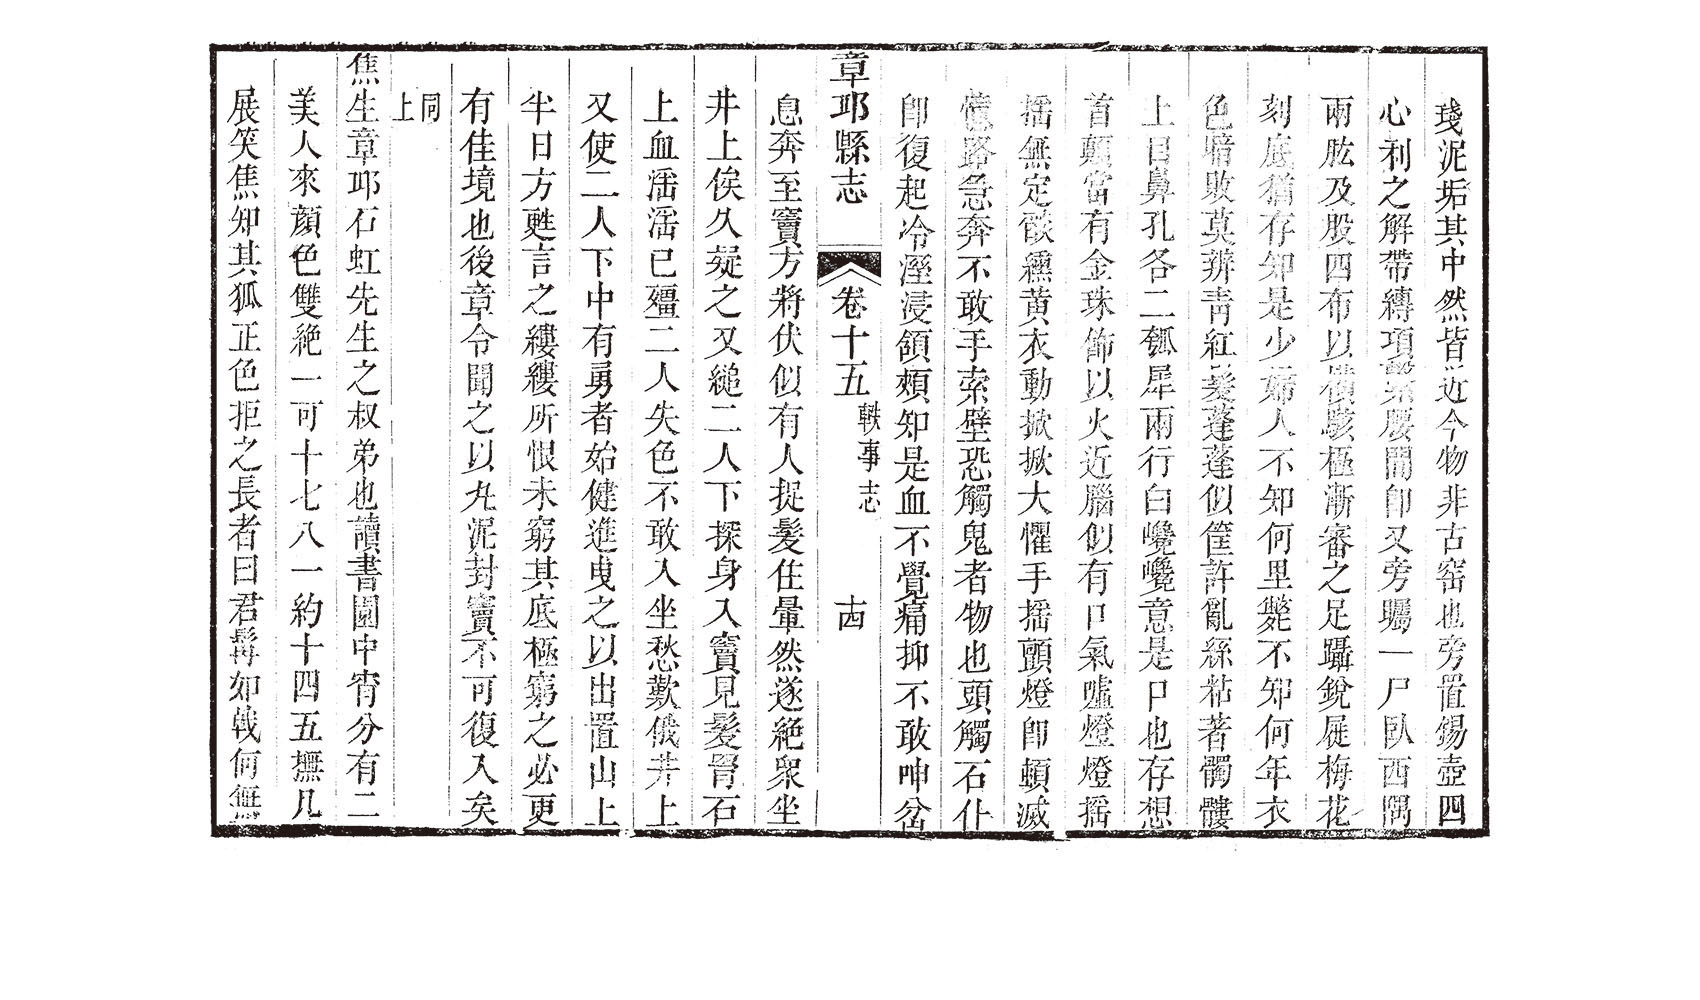 琖泥垢其中然皆近今物非古窑也旁置錫壺四
心利之解帶縛項繫腰間卽又旁矚一尸臥西隅
兩肱及股四布以橫駭極漸審之足躡銳屣梅花
刻底猶存知是少婦人不知何里斃不知何年衣
色暗敗莫辨靑紅髮蓬蓬似筐許亂絲粘著髑髏
上目鼻孔各二瓠犀兩行白巉巉意是口也存想
首顛當有金珠飾以火近腦似有口氣噓燈燈搖
搖無定燄纁黃衣動掀掀大懼手搖顫燈卽頓滅
憶路急奔不敢手索壁恐觸鬼者物也頭觸石仆
卽復起冷溼浸頷頰知是血不覺痛抑不敢呻岔
章邱縣志
卷十五
軼事志
十四
息奔至竇方將伏似有人捉髮住暈然遂絕衆坐
井上俟久疑之又縋二人下探身入竇見髮罥石
上血淫淫已殭二人失色不敢入坐愁歎俄井上
又使二人下中有勇者始健進曳之以出置山上
半日方甦言之縷縷所恨未窮其底極窮之必更
有佳境也後章令聞之以丸泥封竇不可復入矣
同
上
焦生章邱石虹先生之叔弟也讀書園中宵分有二
美人來顏色雙絕一可十七八一約十四五撫几
展笑焦知其狐正色拒之長者曰君髯如戟何無